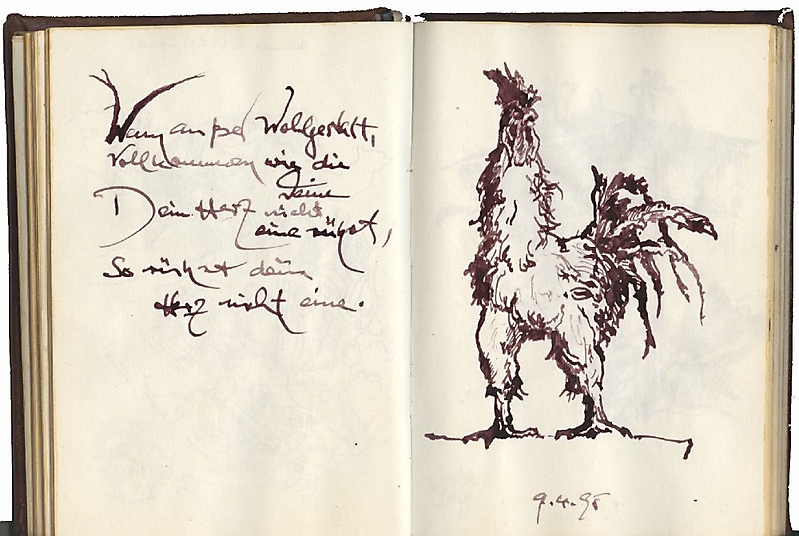 Wenn an Wohlgestalt,
Vollkommen wie die
deine
Dein Herz nicht
eine rührt,
So rührt dein
Herz nicht eine.
9.4.95